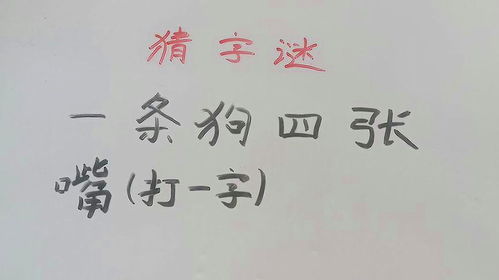 猜字谜
一条狗四张
嘴(打一字)